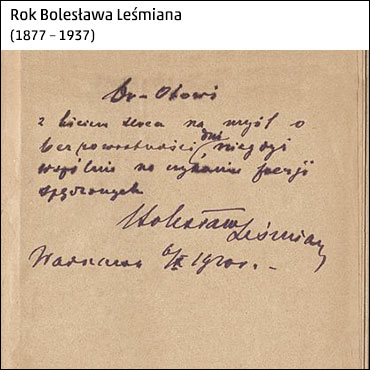 Rok Bolesława Leśmiana
(1877 – 1937)
Br-Otowi
z biciem serca na myśl o
bezpowrotności dni niegdyś
wspólnie na czytaniu poezji
spędzonych
Bolesław Leśmian
Warszawa 6/IX 1920 r.